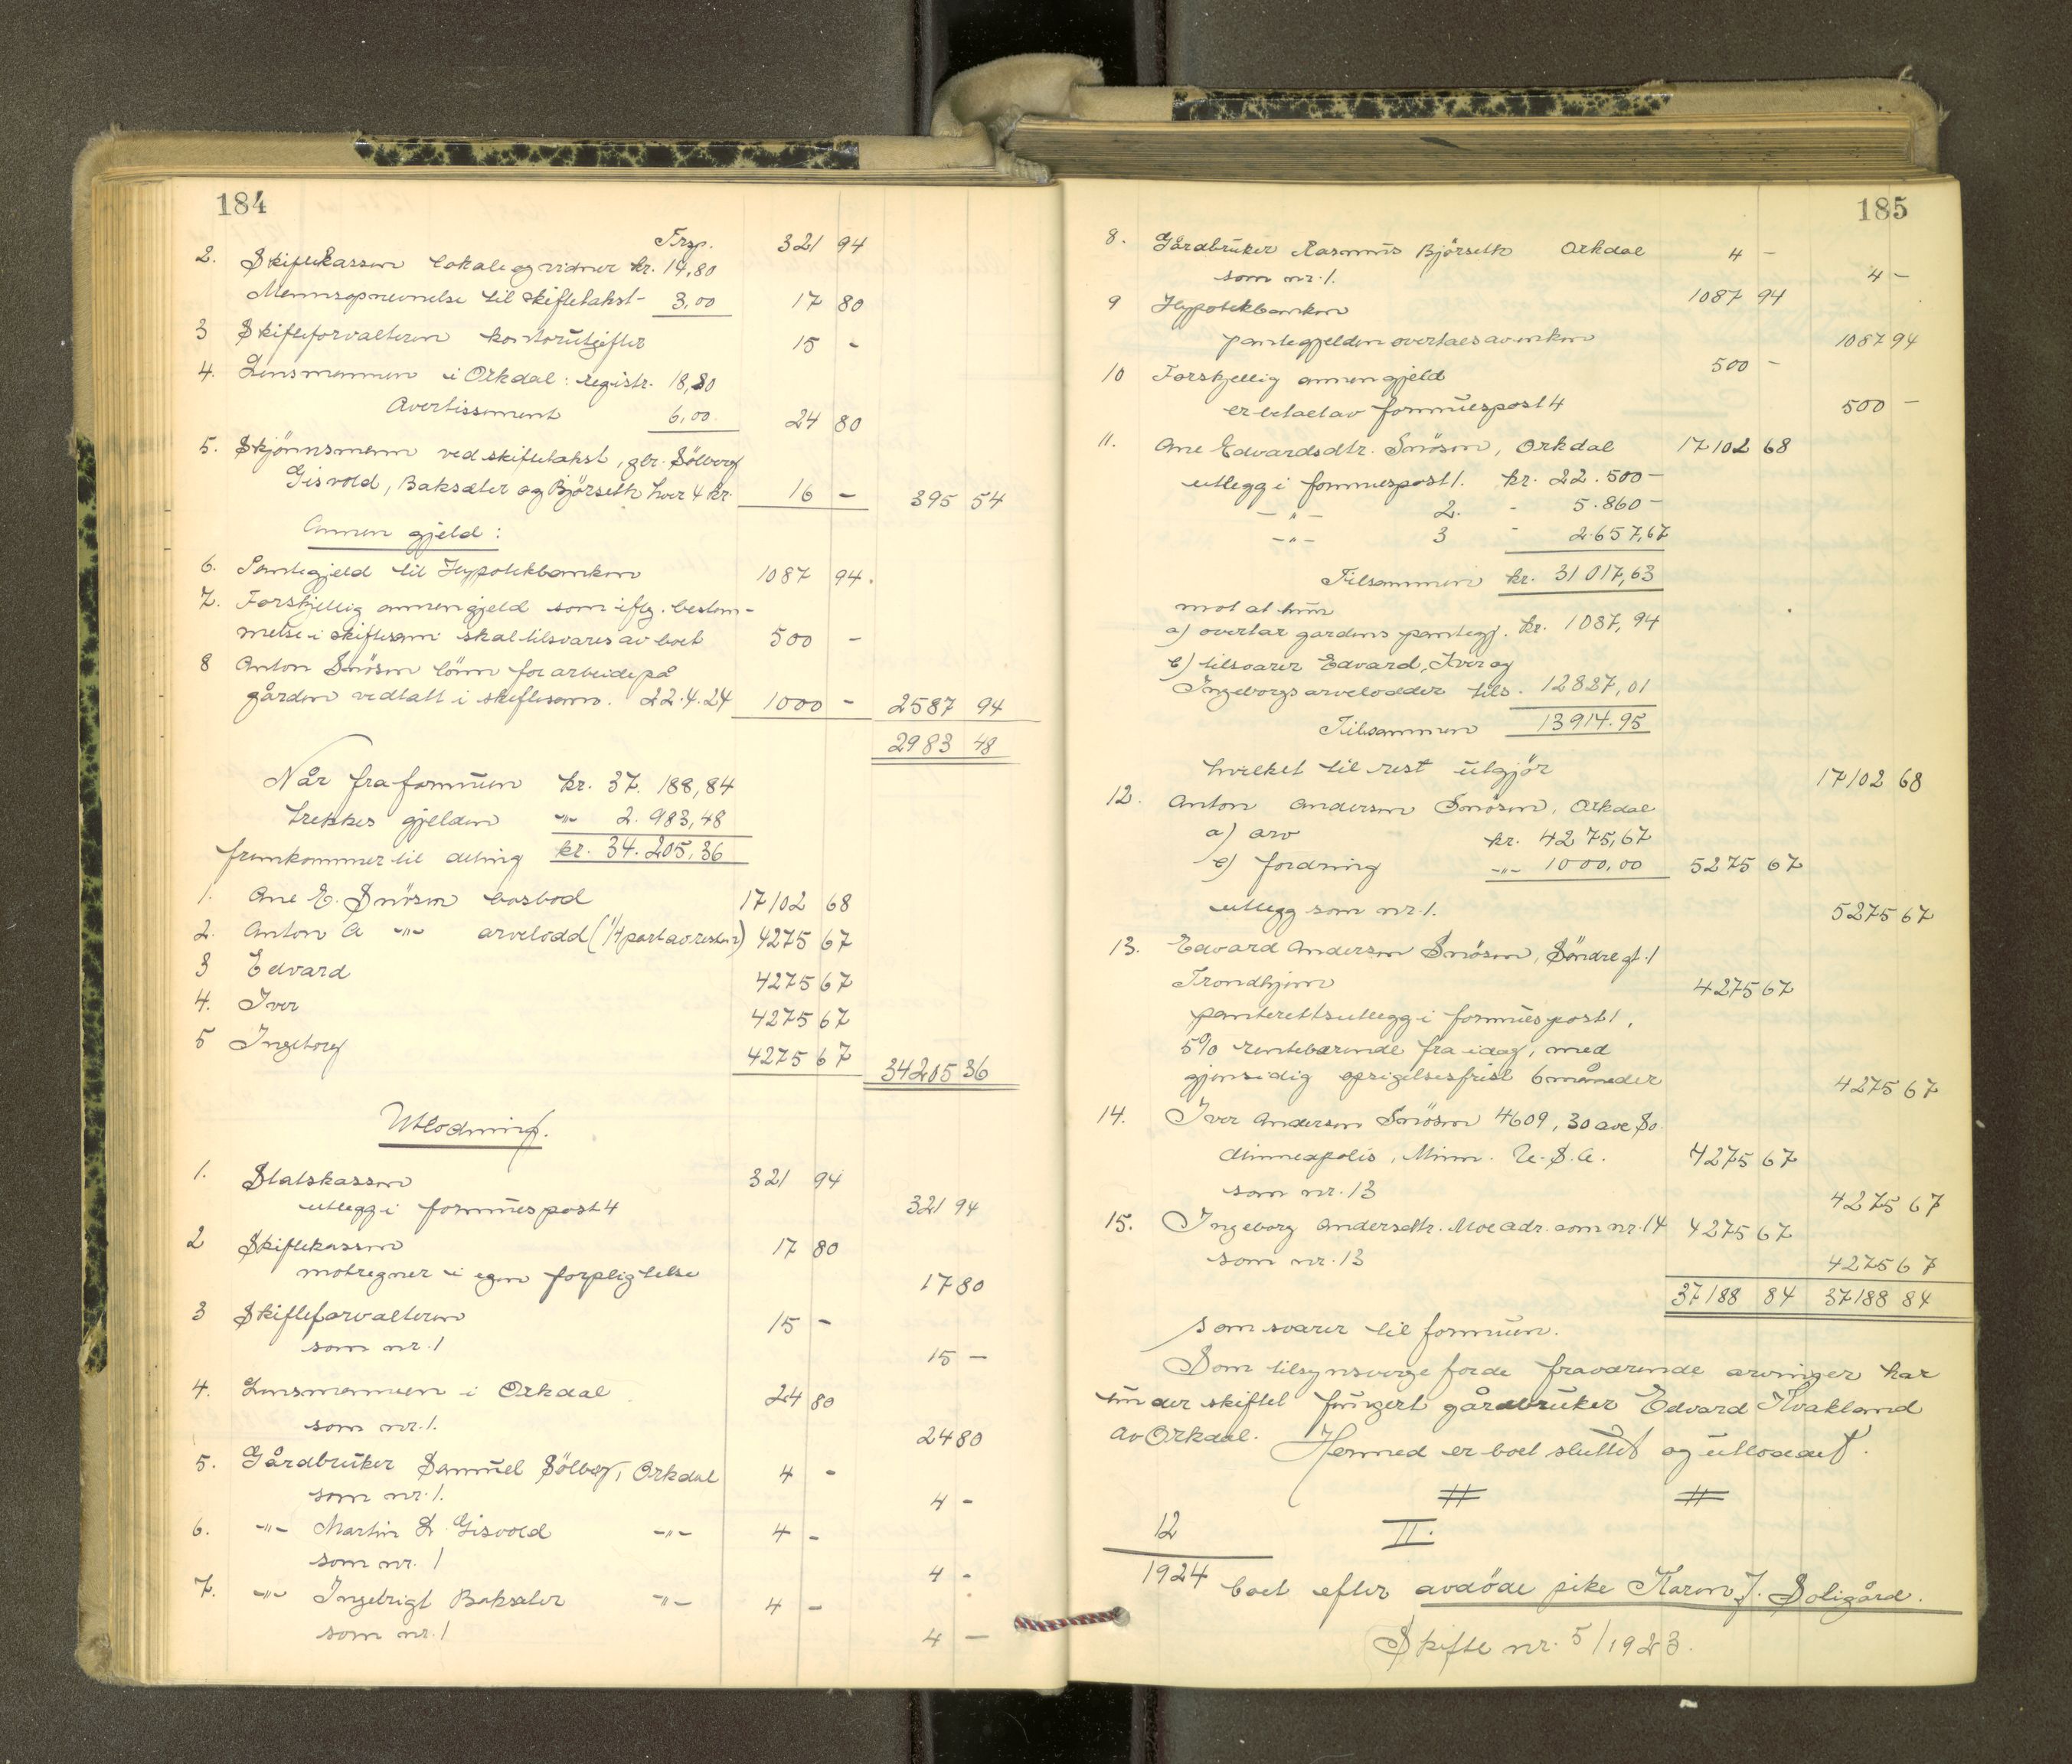 184
Trsp. 321 94
2. Skiftekassen lokale og vidner kr. 14,80
Mennsopnevnelse til skiftetakst - 3,00 17 80
3 Skifteforvalteren kontorutgifter 15 -
4. Lensmannen i Orkdal: registr. 18,80
Avertissement 6,00 24 80
5. Skjønnsmenn ved skiftetakst, gbr. Sölberg
Gisvold, Baksæter og Björseth hver 4 kr. 16 - 395 54
Annen gjeld:
6. Pantegjeld til Hypotekbanken 1087 94.
7. Forskjellig annen gjeld som iflg. bestem-
melse i skiftesam. skal tilsvares av boet 500 -
8 Anton Snösen lönn for arbeide på
gården vedtatt i skiftesam. 22.4.24 1000 - 2587 94
2983 48
Når fra formuen kr. 37.188,84
trekkes gjelden -"- 2.983,48
fremkommer til deling kr. 34.205,36
1. Ane E. Snösen boslod 17102 68
2. Anton A -"- arvelodd (1/4 part av resten) 4275 67
3 Edvard 4275 67
4. Iver 4275 67
5 Ingeborg 4275 67 34205 36
Utlodning.
1. Statskassen 321 94
utlegg i formuespost 4 321 94
2 Skiftekassen 17 80
motregner i egen forpligtelse 17 80
3 Skifteforvalteren 15 -
som nr. 1 15 -
4. Lensmannen i Orkdal 24 80
som nr. 1. 24 80
5. Gårdbruker Samuel Sölberg, Orkdal 4 -
som nr. 1. 4 -
6. -"- Martin L. Gisvold -"- 4 -
som nr. 1 4 -
7. -"- Ingebrigt Baksæter -"- 4 -
som nr. 1 4 -
185
8. Gårdbruker Rasmus Björseth Orkdal 4 -
som nr. 1. 4 -
9 Hypotekbanken 1087 94
pantegjelden overtaes av enken 1087 94
10 Forskjellig annen gjeld 500 -
er betalt av formuespost 4 500 -
11. Ane Edvardsdtr. Snösen, Orkdal 17102 68
utlegg i formuespost 1. kr. 22.500 -
-"- 2. - 5.860 -
-"- 3 - 2.657,67
Tilsammen kr. 31017,63
mot at hun
a) overtar gardens pantegj. kr. 1087,94
b) tilsvarer Edvard, Iver og
Ingeborgs arvelodder tils. 12827,01
Tilsammen 13914.95
hvilket til rest utgjör 17102 68
12. Anton Andersen Snösen, Orkdal
a) arv kr. 4275,67
b) fordring -"- 1000,00 5275 67
utlegg som nr. 1. 5275 67
13. Edvard Andersen Snösen, Söndregt. 1
Trondhjem 4275 67
panterettsutlegg i formuespost 1,
5% rentebærende fra idag, med
gjensidig opsigelsesfrist 6 måneder 4275 67
14. Iver Andersen Snösen 4609, 30 ave So.
Minneapolis, Minn. U.S.A. 4275 67
som nr. 13 4275 67
15. Ingeborg Andersdtr. Moe adr. som nr. 14 4275 67
som nr. 13 4275 67
37188 84 37188 84
som svarer til formuen.
Som tilsynsverge for de fraværende arvinger har
under skiftet fungert gårdbruker Edvard Kvakland
av Orkdal. Hermed er boet sluttet og utloddet.
12
1924
II.
boet efter avdöde pike Karen J. Soligård.
Skifte nr. 5/1923.